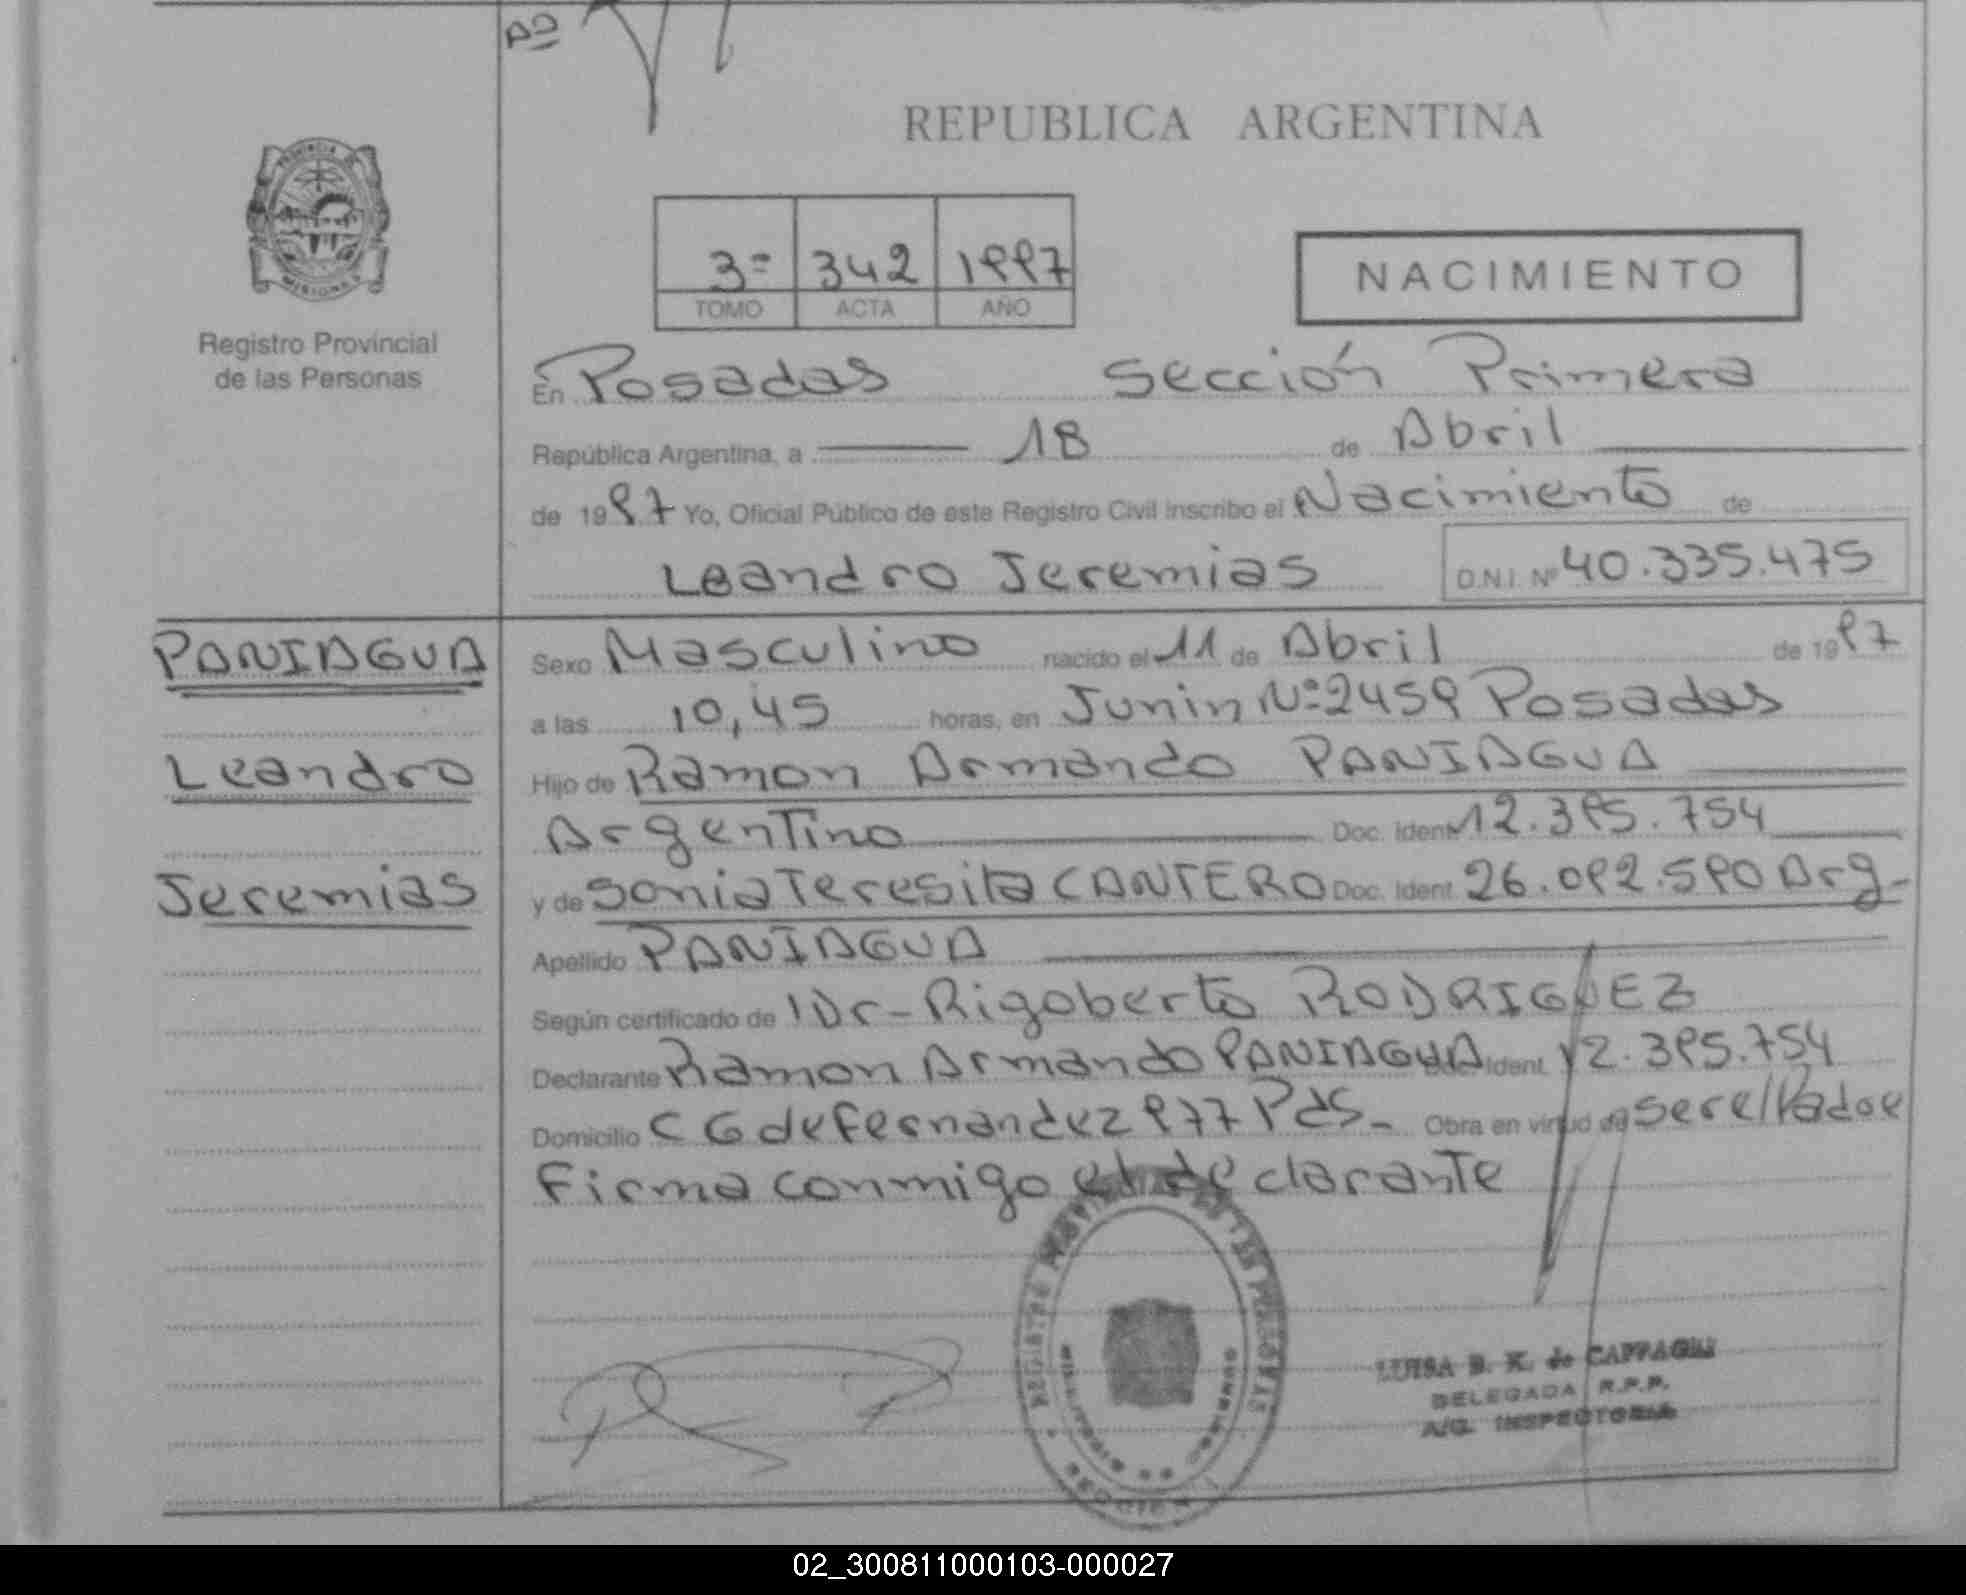 Aº
REPUBLICA ARGENTINA
PROVINCIA DE
MISIONES
Registro Provincial
de las Personas
3º 342 1997
TOMO ACTA AÑO
NACIMIENTO
En Posadas Sección Primera
República Argentina, a 18 de Abril
de 1997 Yo, Oficial Público de este Registro Civil inscribo el Nacimiento de
Leandro Jeremias D.N.I. Nº 40.335.475
PANIAGUA
Leandro
Jeremias
Sexo Masculino nacido el 11 de Abril de 1997
a las 10,45 horas, en Junin Nº 2459 Posadas
Hijo de Ramon Armando PANIAGUA
Argentino Doc. Ident. 12.395.754
y de Sonia Teresita CANTERO Doc. Ident. 26.092.590 Arg-
Apellido PANIAGUA
Según certificado de Dr- Rigoberto RODRIGUEZ
Declarante Ramon Armando PANIAGUA Doc. Ident. 12.395.754
Domicilio C G de Fernandez 977 Pds- Obra en virtud de ser el Padre
Firma conmigo el declarante
LUISA B. K. de
DELEGADA R.P.P.
A/C. INSPECTORIA
02_300811000103-000027